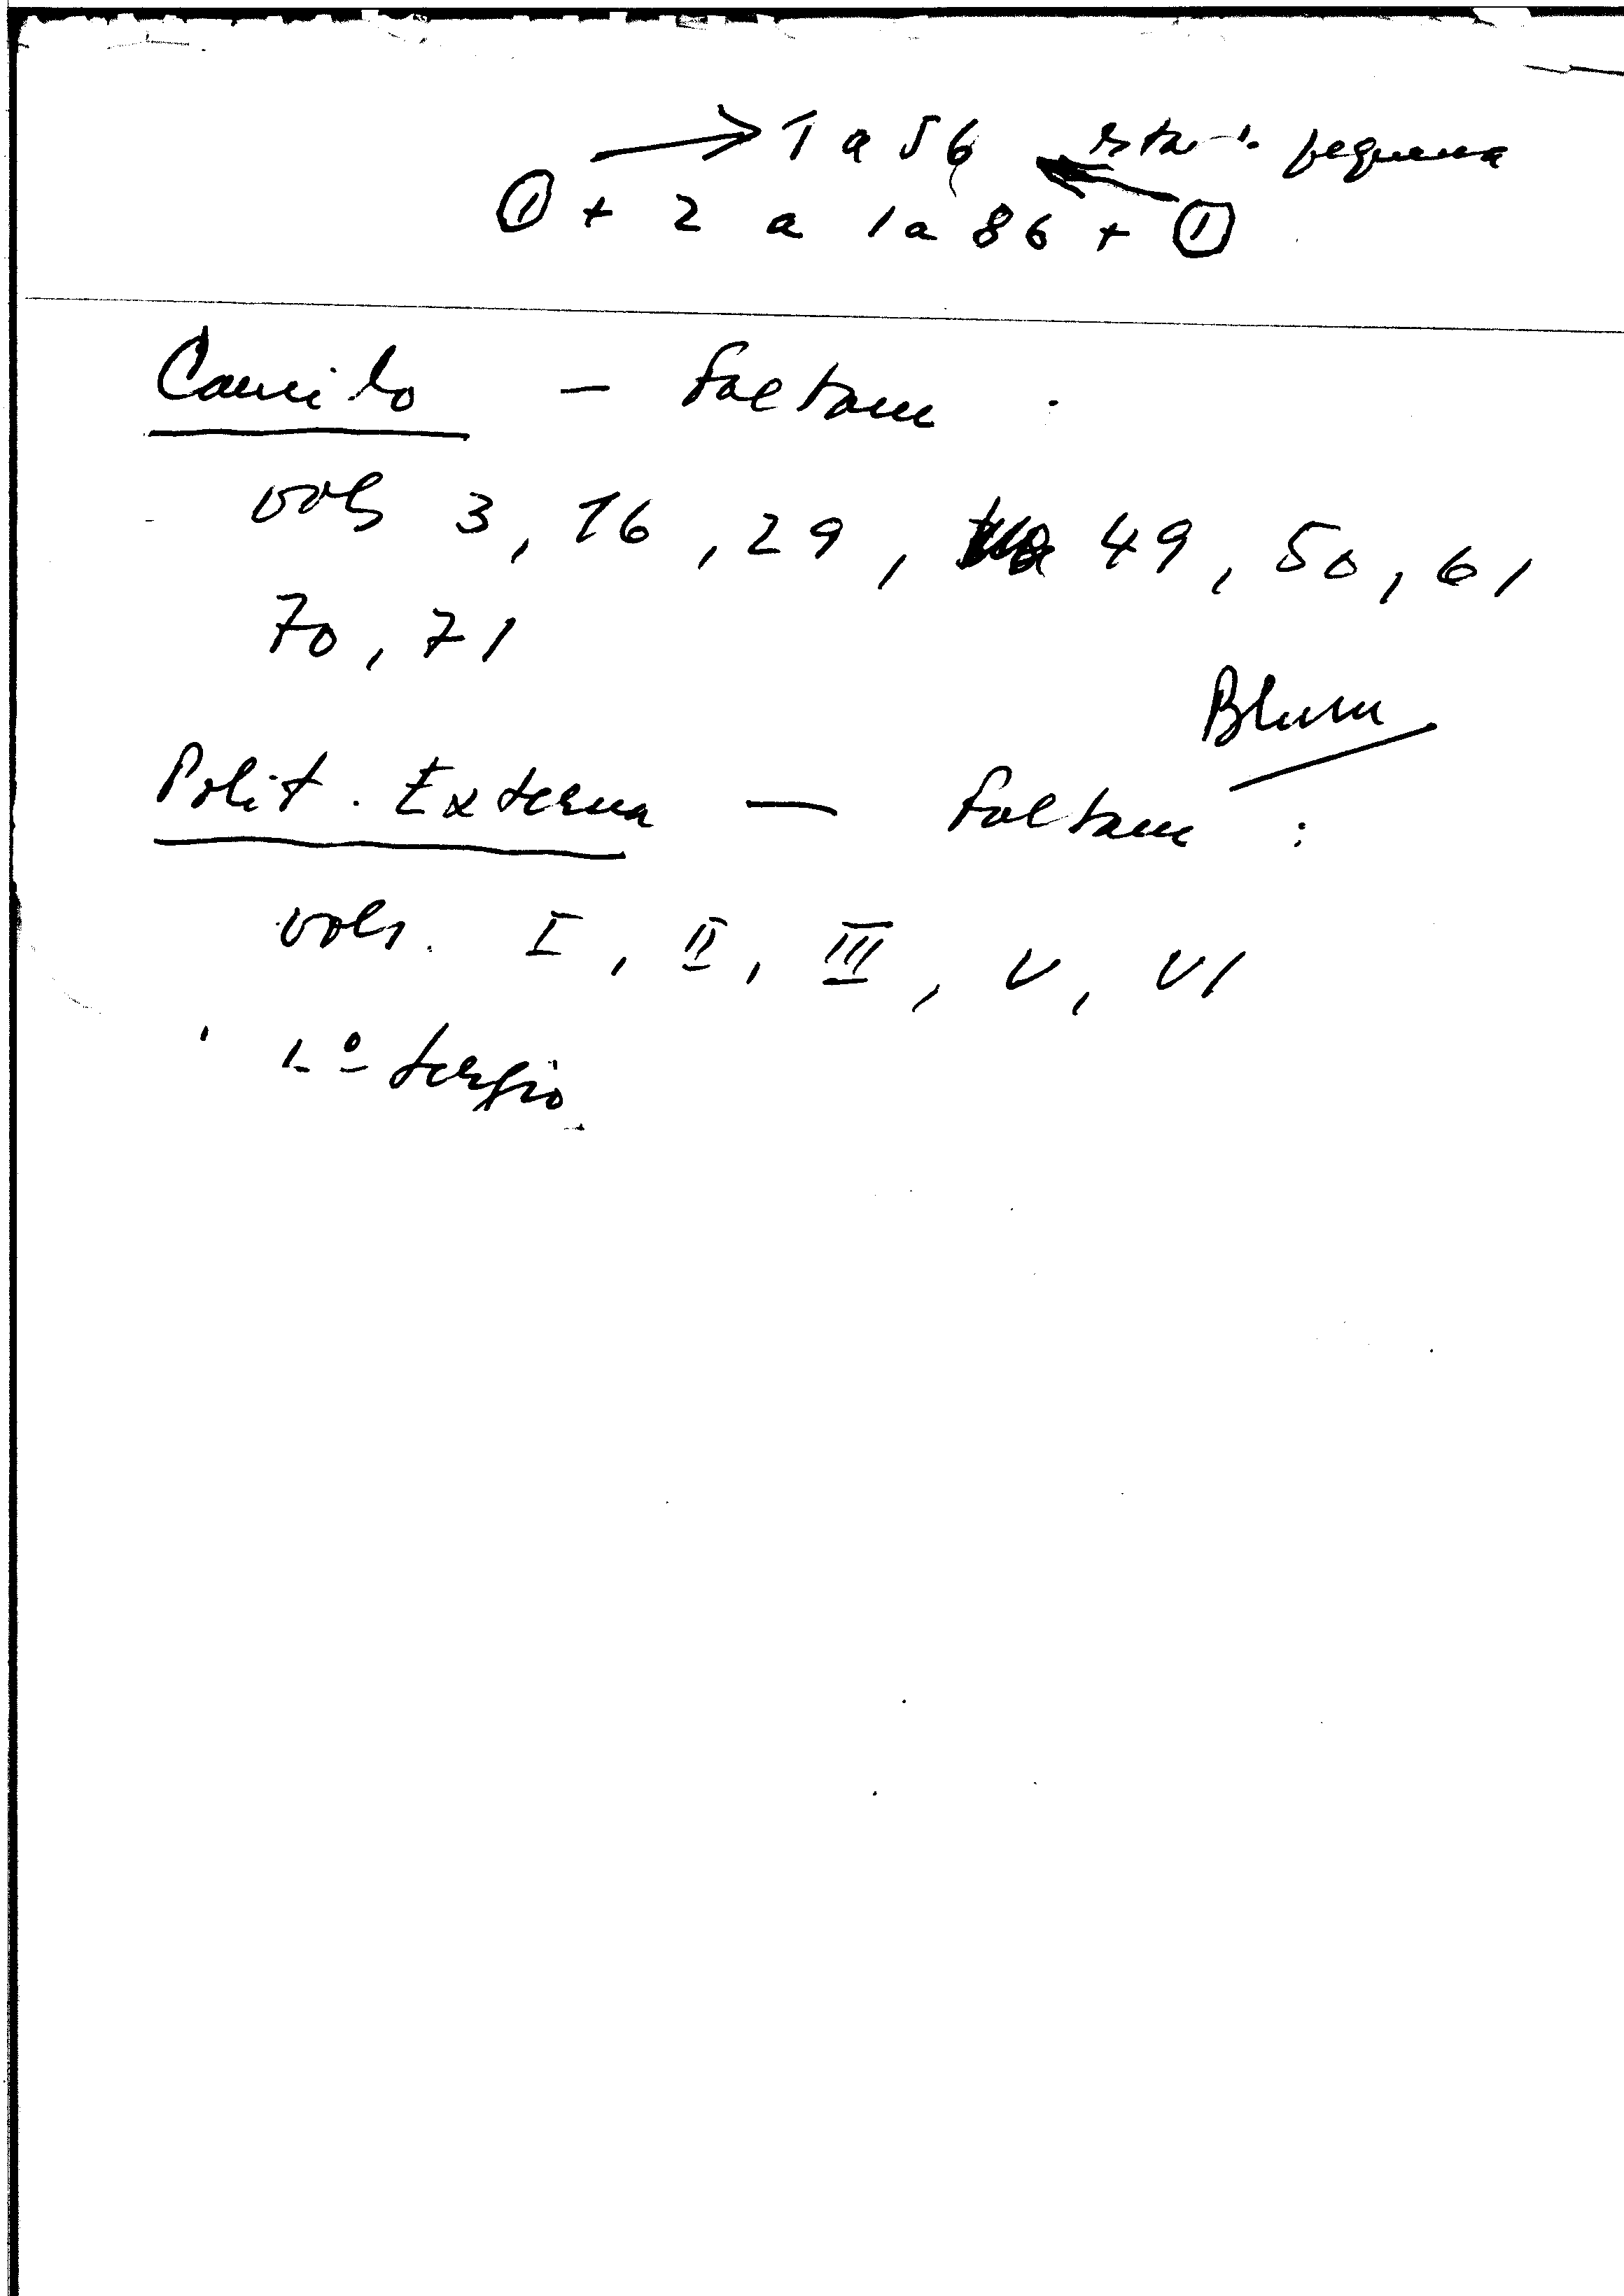 → 1 a 56 ← pequena
① + 2 a 1 a 86 + ①
Camilo — Faltam :
vols 3, 16, 29, 49, 50, 61
70, 71
Blum
Polit. Externa — Faltam :
vols. I, II, III, V, VI
Sergio